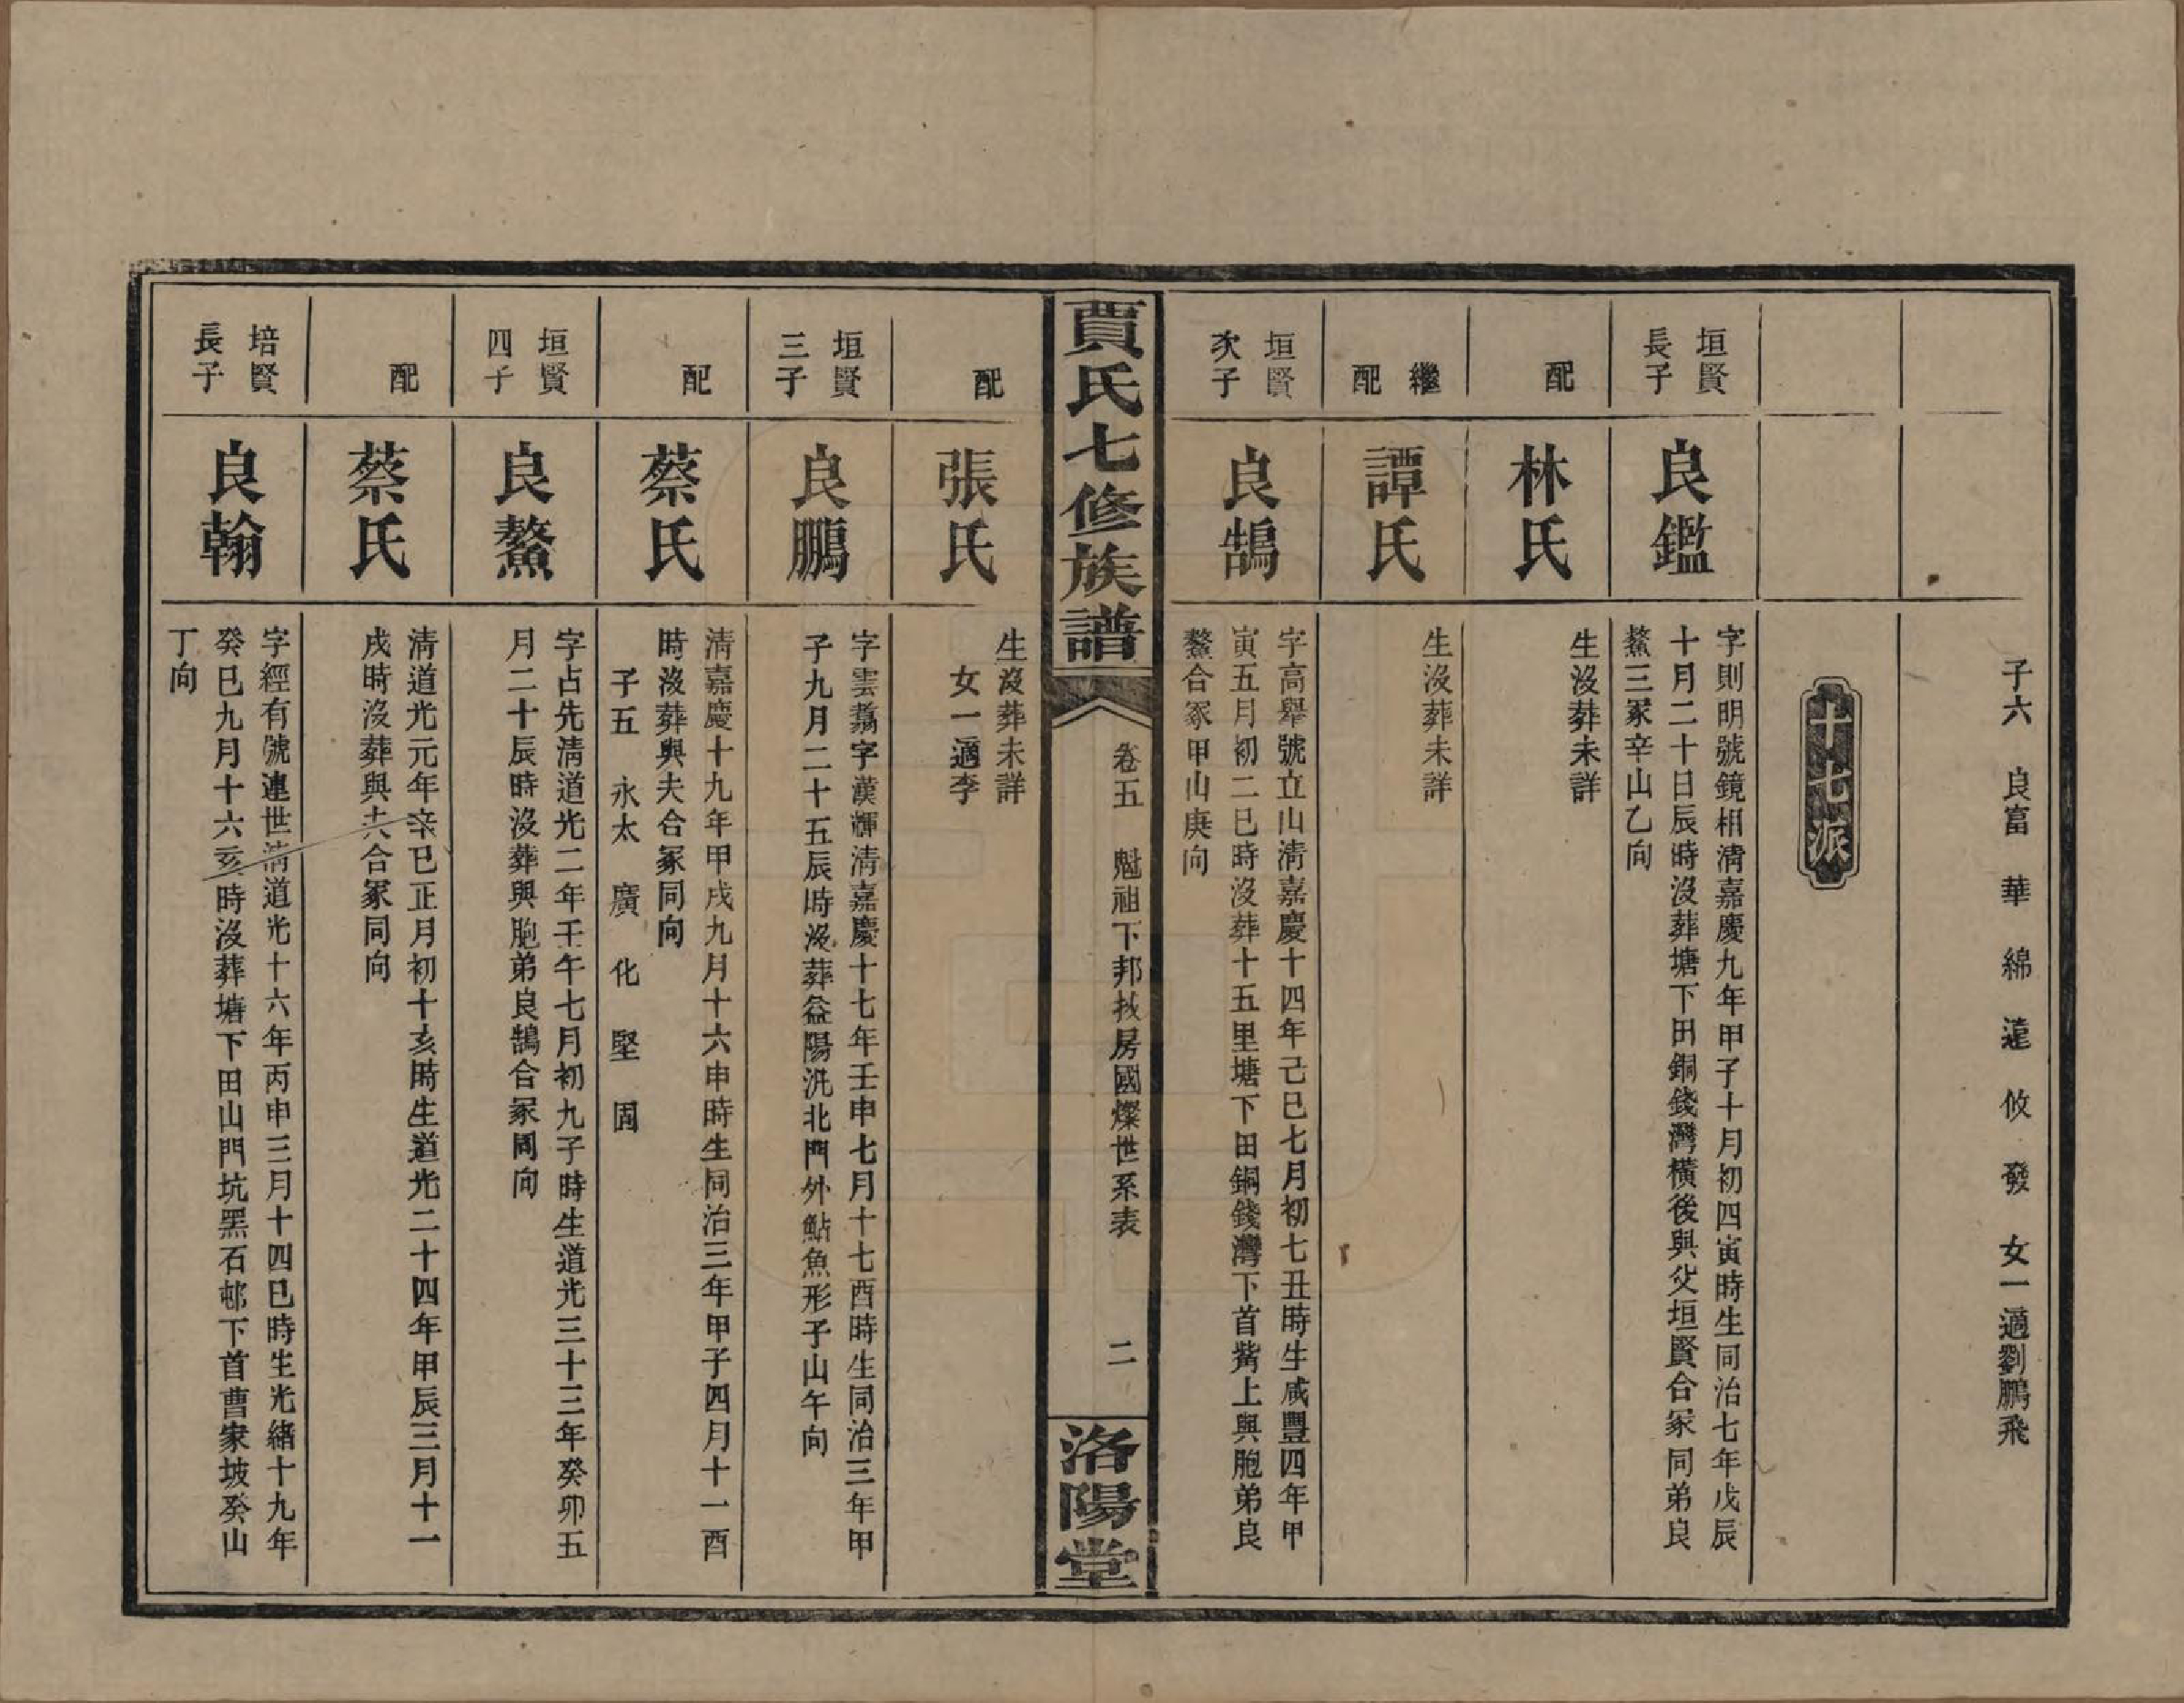 子六 良富 華 綿 遠 攸 發 女一適劉鵬飛
十七派
垣賢
長子
良鑑
字則明號鏡相清嘉慶九年甲子十月初四寅時生同治七年戊辰
十月二十日辰時沒葬塘下田銅錢灣橫後與父垣賢合冢同弟良
鰲三冢辛山乙向
配
林氏
生沒葬未詳
繼
配
譚氏
生沒葬未詳
垣賢
次子
良鵠
字高舉號立山清嘉慶十四年己巳七月初七丑時生咸豐四年甲
寅五月初二巳時沒葬十五里塘下田銅錢灣下首觜上與胞弟良
鰲合冢甲山庚向
賈氏七修族譜
卷五 魁祖下邦掞房國燦世系表
二
洛陽堂
配
張氏
生沒葬未詳
女一適李
垣賢
三子
良鵬
字雲翥字漢輝清嘉慶十七年壬申七月十七酉時生同治三年甲
子九月二十五辰時沒葬益陽汛北門外鮎魚形子山午向
配
蔡氏
清嘉慶十九年甲戌九月十六申時生同治三年甲子四月十一酉
時沒葬與夫合冢同向
子五 永太 廣 化 堅 固
垣賢
四子
良鰲
字占先清道光二年壬午七月初九子時生道光三十三年癸卯五
月二十辰時沒葬與胞弟良鵠合冢同向
配
蔡氏
清道光元年辛巳正月初十亥時生道光二十四年甲辰三月十一
戌時沒葬與夫合冢同向
培賢
長子
良翰
字經有號連世清道光十六年丙申三月十四巳時生光緒十九年
癸巳九月十六亥時沒葬塘下田山門坑黑石邨下首曹家坡癸山
丁向